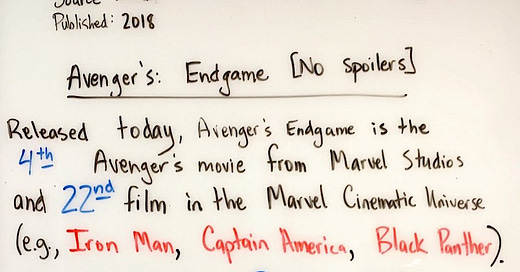 Published: 2018
Avenger's: Endgame [No spoilers]
Released today, Avenger's Endgame is the
4th Avenger's movie from Marvel Studios
and 22nd film in the Marvel Cinematic Universe
(e.g., Iron Man, Captain America, Black Panther).